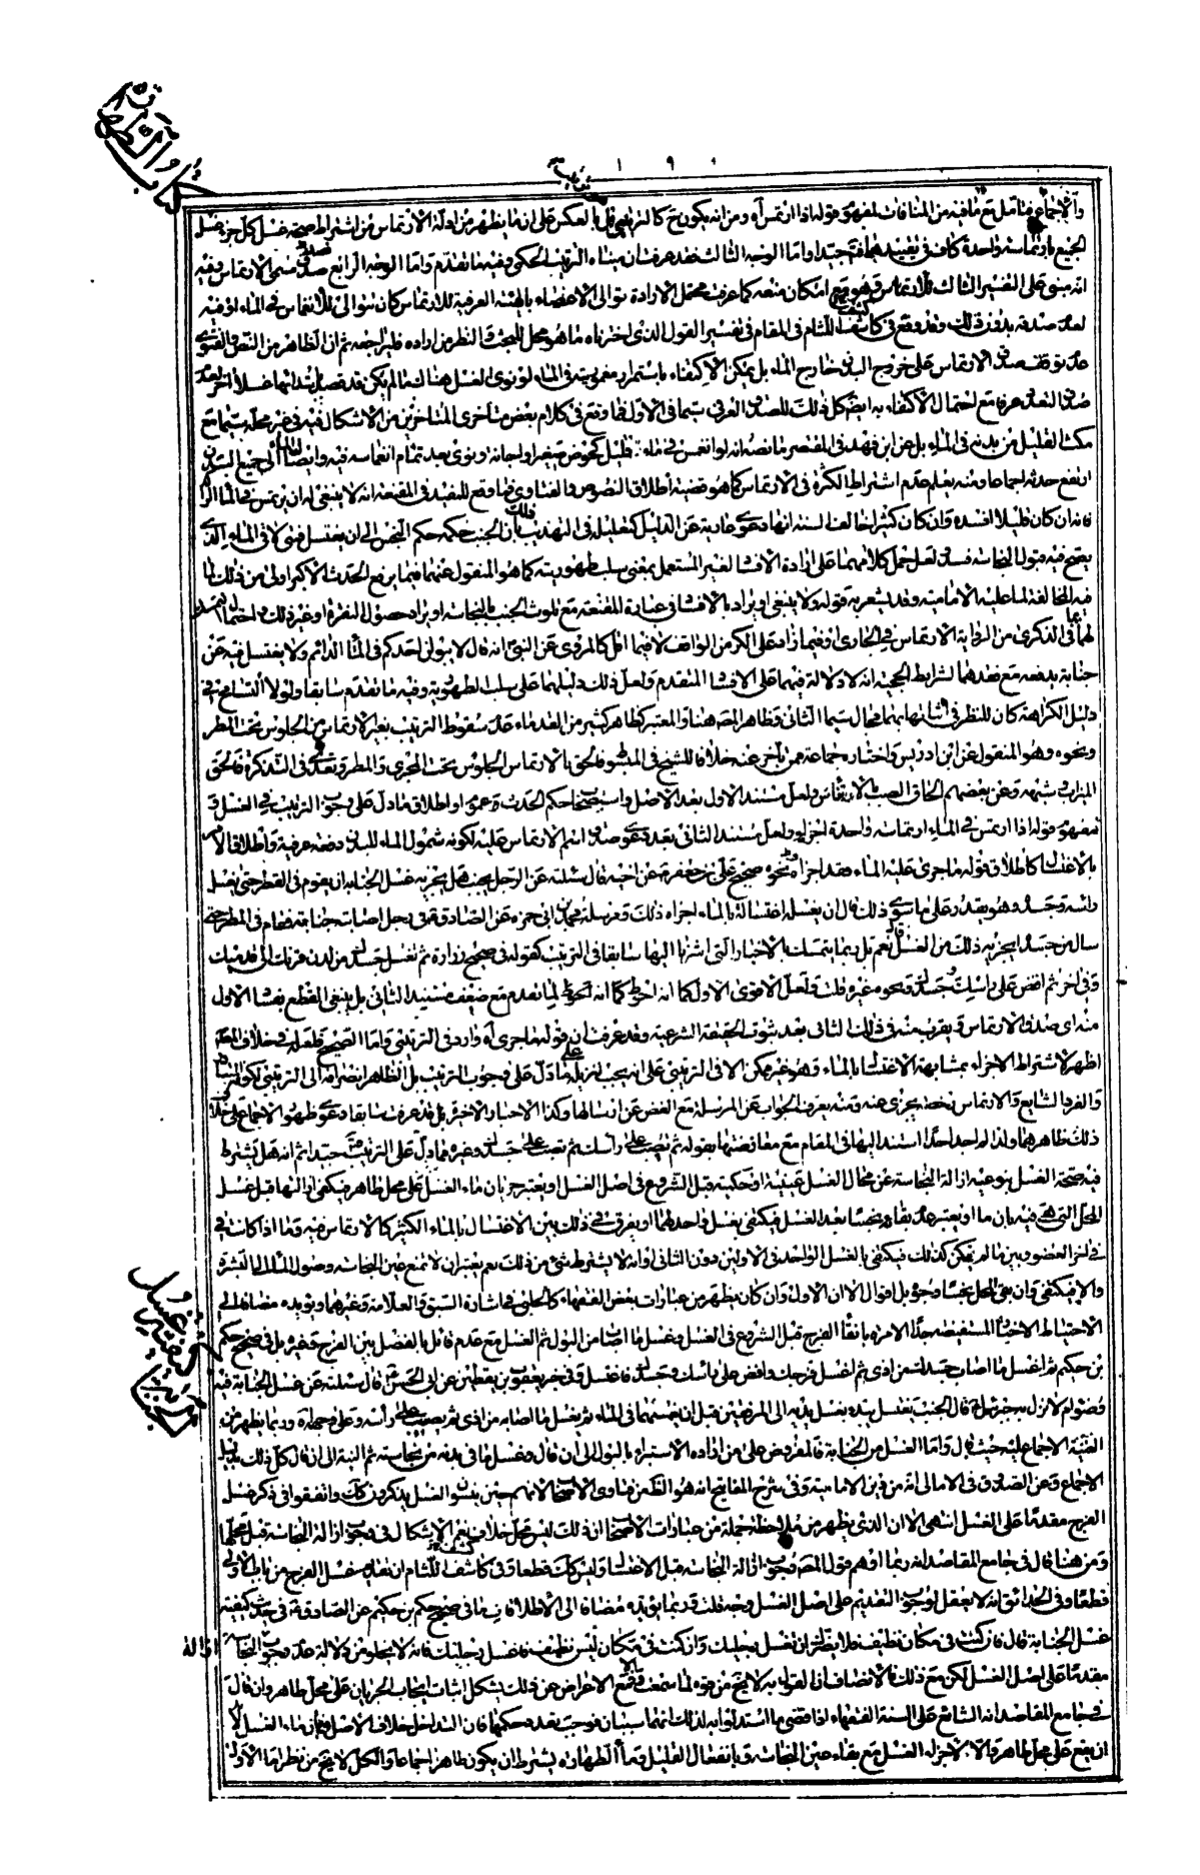 كتاب الطهارة
١٩٠
والاجماع فتامل مع ما فيه من المنافات لمفهوم قوله اذا ارتمس اه ومن انه يكون ح كالترتيبي بل بالعكس على ان ما يظهر من ادلة الارتماس من اشتراط صحة غسل كل جزء بغسل
الجميع بارتماسة واحدة كاف في تقييدهما فت جيدا واما الوجه الثالث فقد عرفت ان مبناه الترتيب الحكمي وفيه ما تقدم واما الوجه الرابع صدق مسمى الارتماس وفيه
انه مبنى على التفسير الثالث للارتماس وهو مع امكان منعه كما عرفت محتمل لارادة توالي الاعضاء بالهيئة العرفية للارتماس كان نوى الانغماس في الماء لو فيه
لعدم صدقه بدون ذلك وقد وقع في كاشف اللثام في المقام في تفسير القول الذي اخترناه ما هو محل للبحث والنظر من اراده فليراجعه ثم ان الظاهر من النص والفتوى
عدم توقف صدق الارتماس على خروج البدن خارج الماء بل يمكن الاكتفاء باستمرار معنويته في الماء لو نوى الغسل هناك ما لم يكن قد قصد بابتدائها غسلا اخر لعدم
صدق التعدد عرفا مع احتمال الاكتفاء به ايضا كل ذلك للصدق العرفي سيما في الاول فما وقع في كلام بعض متأخرى المتاخرين من الاشكال فيه في غير محله سيما مع
مكث القليل من بدنه في الماء بل عن ابن فهد في المقتصر ما نصه انه لو انغمس في ماء قليل كحوض صغير او اجانة ونوى بعد تمام انغماسه فيه وايصال الماء الى جميع البشرة
ارتفع حدثه اجماعا ومنه يعلم عدم اشتراط الكثرة في الارتماس كما هو قضية اطلاق النصوص والفتاوى فما وقع للمفيد في المقنعة انه لا ينبغى له ان يرتمس في الماء الراكد
فانه ان كان قليلا افسده وان كان كثيرا خالف السنة انها دعوى عارية عن الدليل كتعليله في التهذيب ذلك بان الجنب حكمه حكم النجس الى ان يغتسل فمتى لاقى الماء الذي
يصح فيه قبول النجاسة فسد لعل حمل كلامهما على ارادة الافساد لغير المستعمل بمعنى سلب طهوريته كما هو المنقول عنهما فيما يرفع الحدث الاكبر اولى من ذلك لما
فيه المخالفة لما عليه الامامية وقد يشعر به قوله ولا ينبغى او يراد بالافساد في عبارة المقنعة مع تلوث الجنب بالنجاسة او يراد حصول النفرة او غير ذلك
لهما في الذكرى من الرواية الارتماس في الجارى او فيما زاد على الكر من الواقف لا فيما اقل كالمروى عن النبي انه قال لا يبولن احدكم في الماء الدائم ولا يغتسل فيه عن
جنابة يدفعه مع فقدهما لشرايط الحجية انه لا دلالة فيهما على الافساد المتقدم ولعل ذلك دليلهما على سلب الطهورية وفيه ما تقدم سابقا ولولا التسامح في
دليل الكراهة كان للنظر في اثباتها بهما مجال سيما الثانى وظاهر المصه هنا والمعتبر كظاهر كثير من القدماء عدم سقوط الترتيب بغير الارتماس من الجلوس تحت المطر
ونحوه وهو المنقول عن ابن ادريس واختاره جماعة ممن تأخر عنه خلافا للشيخ في المبسوط فالحق بالارتماس الجلوس تحت المجرى والمطر وتعدى في التذكرة فالحق
الميزاب وشبهه وعن بعضهم الحاق الصب بالارتماس ولعل مستند الاول بعد الاصل واستصحاب حكم الحدث وعموم او اطلاق ما دل على وجوب الترتيب في الغسل و
مفهوم قوله اذا ارتمس في الماء ارتماسة واحدة اجزئه ولعل مستند الثانى بعد دعوى صدق اسم الارتماس عليه لكونه شمول الماء للبدن دفعة عرفية واطلاق الامر
بالاغتسال كاطلاق قوله ما جرى عليه الماء فقد اجزاه ونحوه صحيح على بن جعفر عن اخيه قال سئلته عن الرجل يجنب هل يجزيه غسل الجنابة ان يقوم في القطر حتى يغسل
رأسه وجسده وهو يقدر على ما سوى ذلك قال ان يغسله اغتساله بالماء اجزاه ذلك ومرسلة محمد بن ابي حمزه عن الصادق في رجل اصابته جنابة فقام في المطر حتى
سال من جسده ايجزيه ذلك من الغسل قال نعم بل ربما يتمسك بالاخبار التي اشرنا اليها سابقا في الترتيب كقوله في صحيح زرارة ثم تغسل جسدك من لدن قرنك الى قدميك
وفي اخر ثم افض على راسك وجسدك ونحوه غيره قلت ولعل الاقوى الاول كما انه احوط لما تقدم مع ضعف مستند الثانى بل ينبغي القطع بفساد الاول
منه اى صدق الارتماس ويقرب منه في ذلك الثانى بعد ثبوت الحقيقة الشرعية وقد عرفت ان قوله ما جرى اه وارد في الترتيبي واما الصحيح فلعله في خلاف المط
اظهر لاشتراط الاجزاء بمشابهة الاغتسال بالماء وهو غير ممكن الا في الترتيبي على انه يجب تنزيله على ما دل على وجوب الترتيب بل الظاهر انصرافه الى الترتيبي لكونه المتبادر
والفرد الشايع والارتماس رخصة يجزى عنه ومنه يعرف الجواب عن المرسلة مع الغض عن ارسالها وكذا الاخبار الاخيرة بل قد عرفت سابقا دعوى ظهور الاجماع على خلاف
ذلك ظاهرهما ولذا لم اجد احدا استند اليها في المقام مع معارضتها بقوله ثم تصب على راسك ثم تصب على جسدك وغيره مما دل على الترتيب فت جيدا ثم انه هل يشترط
في صحة الغسل بنوعيه ازالة النجاسة عن محال الغسل عينية او حكمية قبل الشروع في اصل الغسل او يعتبر جريان ماء الغسل على محل طاهر فيكفى ازالتها قبل غسل
المحل التي هي فيه بان ما او يعتبر عدم بقاءه نجسا بعد الغسل فيكتفى بغسل واحد لهما او يفرق في ذلك بين الاغتسال بالماء الكثير كالارتماس فيه وما اذا كانت في
في اخر العضو وبين ما لم يكن كذلك فيكتفى بالغسل الواحد في الاولين دون الثانى او انه لا يشترط شئ من ذلك نعم يعتبر ان لا تمنع عين النجاسة وصول الماء الى البشرة
والا فيكتفى وان بقى المحل نجسا وجوه بل اقوال الا ان الاول وان كان يظهر من عبارات بعض الفقهاء كالحلبي في اشارة السبق والعلامة وغيرهما ويؤيده مضافا الى
الاحتياط الاخبار المستفيضة جدا الامرة بانقاء الفرج قبل الشروع في الغسل وغسل ما اصاب من البول ثم الغسل مع عدم قائل بالفصل بين الفرج وغيره بل في صحيح حكم
بن حكيم ثم اغسل ما اصاب جسدك من اذى ثم اغسل فرجك وافض على راسك وجسدك فاغتسل وفي خبر يعقوب بن يقطين عن ابى الحسن قال سئلته عن غسل الجنابة فيه
وضوء ام لا نزل به جبرئيل قال الجنب يغتسل يبدء بغسل يديه الى المرفقين قبل ان يغمسهما في الماء ثم يغسل ما اصابه من اذى ثم يصب على رأسه وعلى وجهه وربما يظهر من
الغنية الاجماع عليه حيث قال واما الغسل من الجنابة فالمفروض على من اراده الاستبراء بالبول الى ان قال وغسل ما في بدنه من نجاسة ثم النية الى ان قال كل ذلك بدليل
الاجماع وعن الصدوق في الامالى انه من دين الامامية وفي شرح المفاتيح انه هو الظ من فتاوى الاصحاب لانهم حيث بينوا الغسل يذكرون كك واتفقوا في ذكر غسل
الفرج مقدما على الغسل انتهى الا ان الذي يظهر من ملاحظة جملة من عبارات الاصحاب ان ذلك ليس محل خلاف نعم الاشكال في وجوب ازالة النجاسة قبل محلها
ومن هنا قال في جامع المقاصد انه ربما اوهم قول المصه وجوب ازالة النجاسة قبل الاغتسال وليس كك قطعا وفي كاشف اللثام ان تقديم غسل الفرج من باب الاولى
قطعا وفي الحدائق انه لا يعقل لوجوب التقديم على اصل الغسل وجه قلت قد بما يؤيده مضافا الى الاطلاقات ما في صحيح حكم بن حكيم عن الصادق في حديث كيفية
غسل الجنابة قال فان كنت في مكان نظيف فلا يضرك ان تغسل رجليك وان كنت في مكان ليس نظيف فاغسل رجليك فانه لا يخلو من دلالة عدم وجوب ازالة النجاسة
مقدما على اصل الغسل لكن مع ذلك فالانصاف ان القول به لا يخ من قوة لما سمعت ومع الاعراض عن ذلك يشكل اثبات ايجاب الجريان على محل طاهر وان قال
في جامع المقاصد انه الشائع على السنة الفقهاء اذ اقصى ما استدلوا به لذلك انهما سببان فوجب تعدد حكمهما فان التداخل خلاف الاصل وبان ماء الغسل لا بد
ان يقع على محل طاهر والا لاجزاء الغسل مع بقاء عين النجاسة وبانفعال القليل وماء الطهارة يشترط ان يكون طاهرا اجماعا والكل لا يخ من نظر اما الاول
كيفية غسل الجنابة